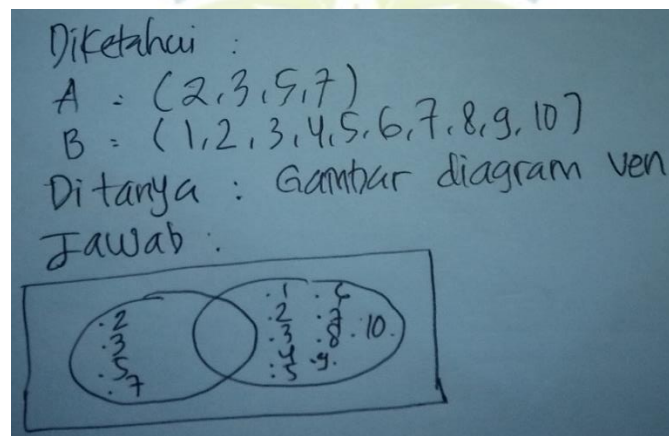 Diketahui :
A : (2,3,5,7)
B : (1,2,3,4,5,6,7,8,9,10)
Ditanya : Gambar diagram ven
Jawab :
.2 .1 .6
.3 .2 .7
.5 .3 .8 .10.
.7 .4 .9.
.5